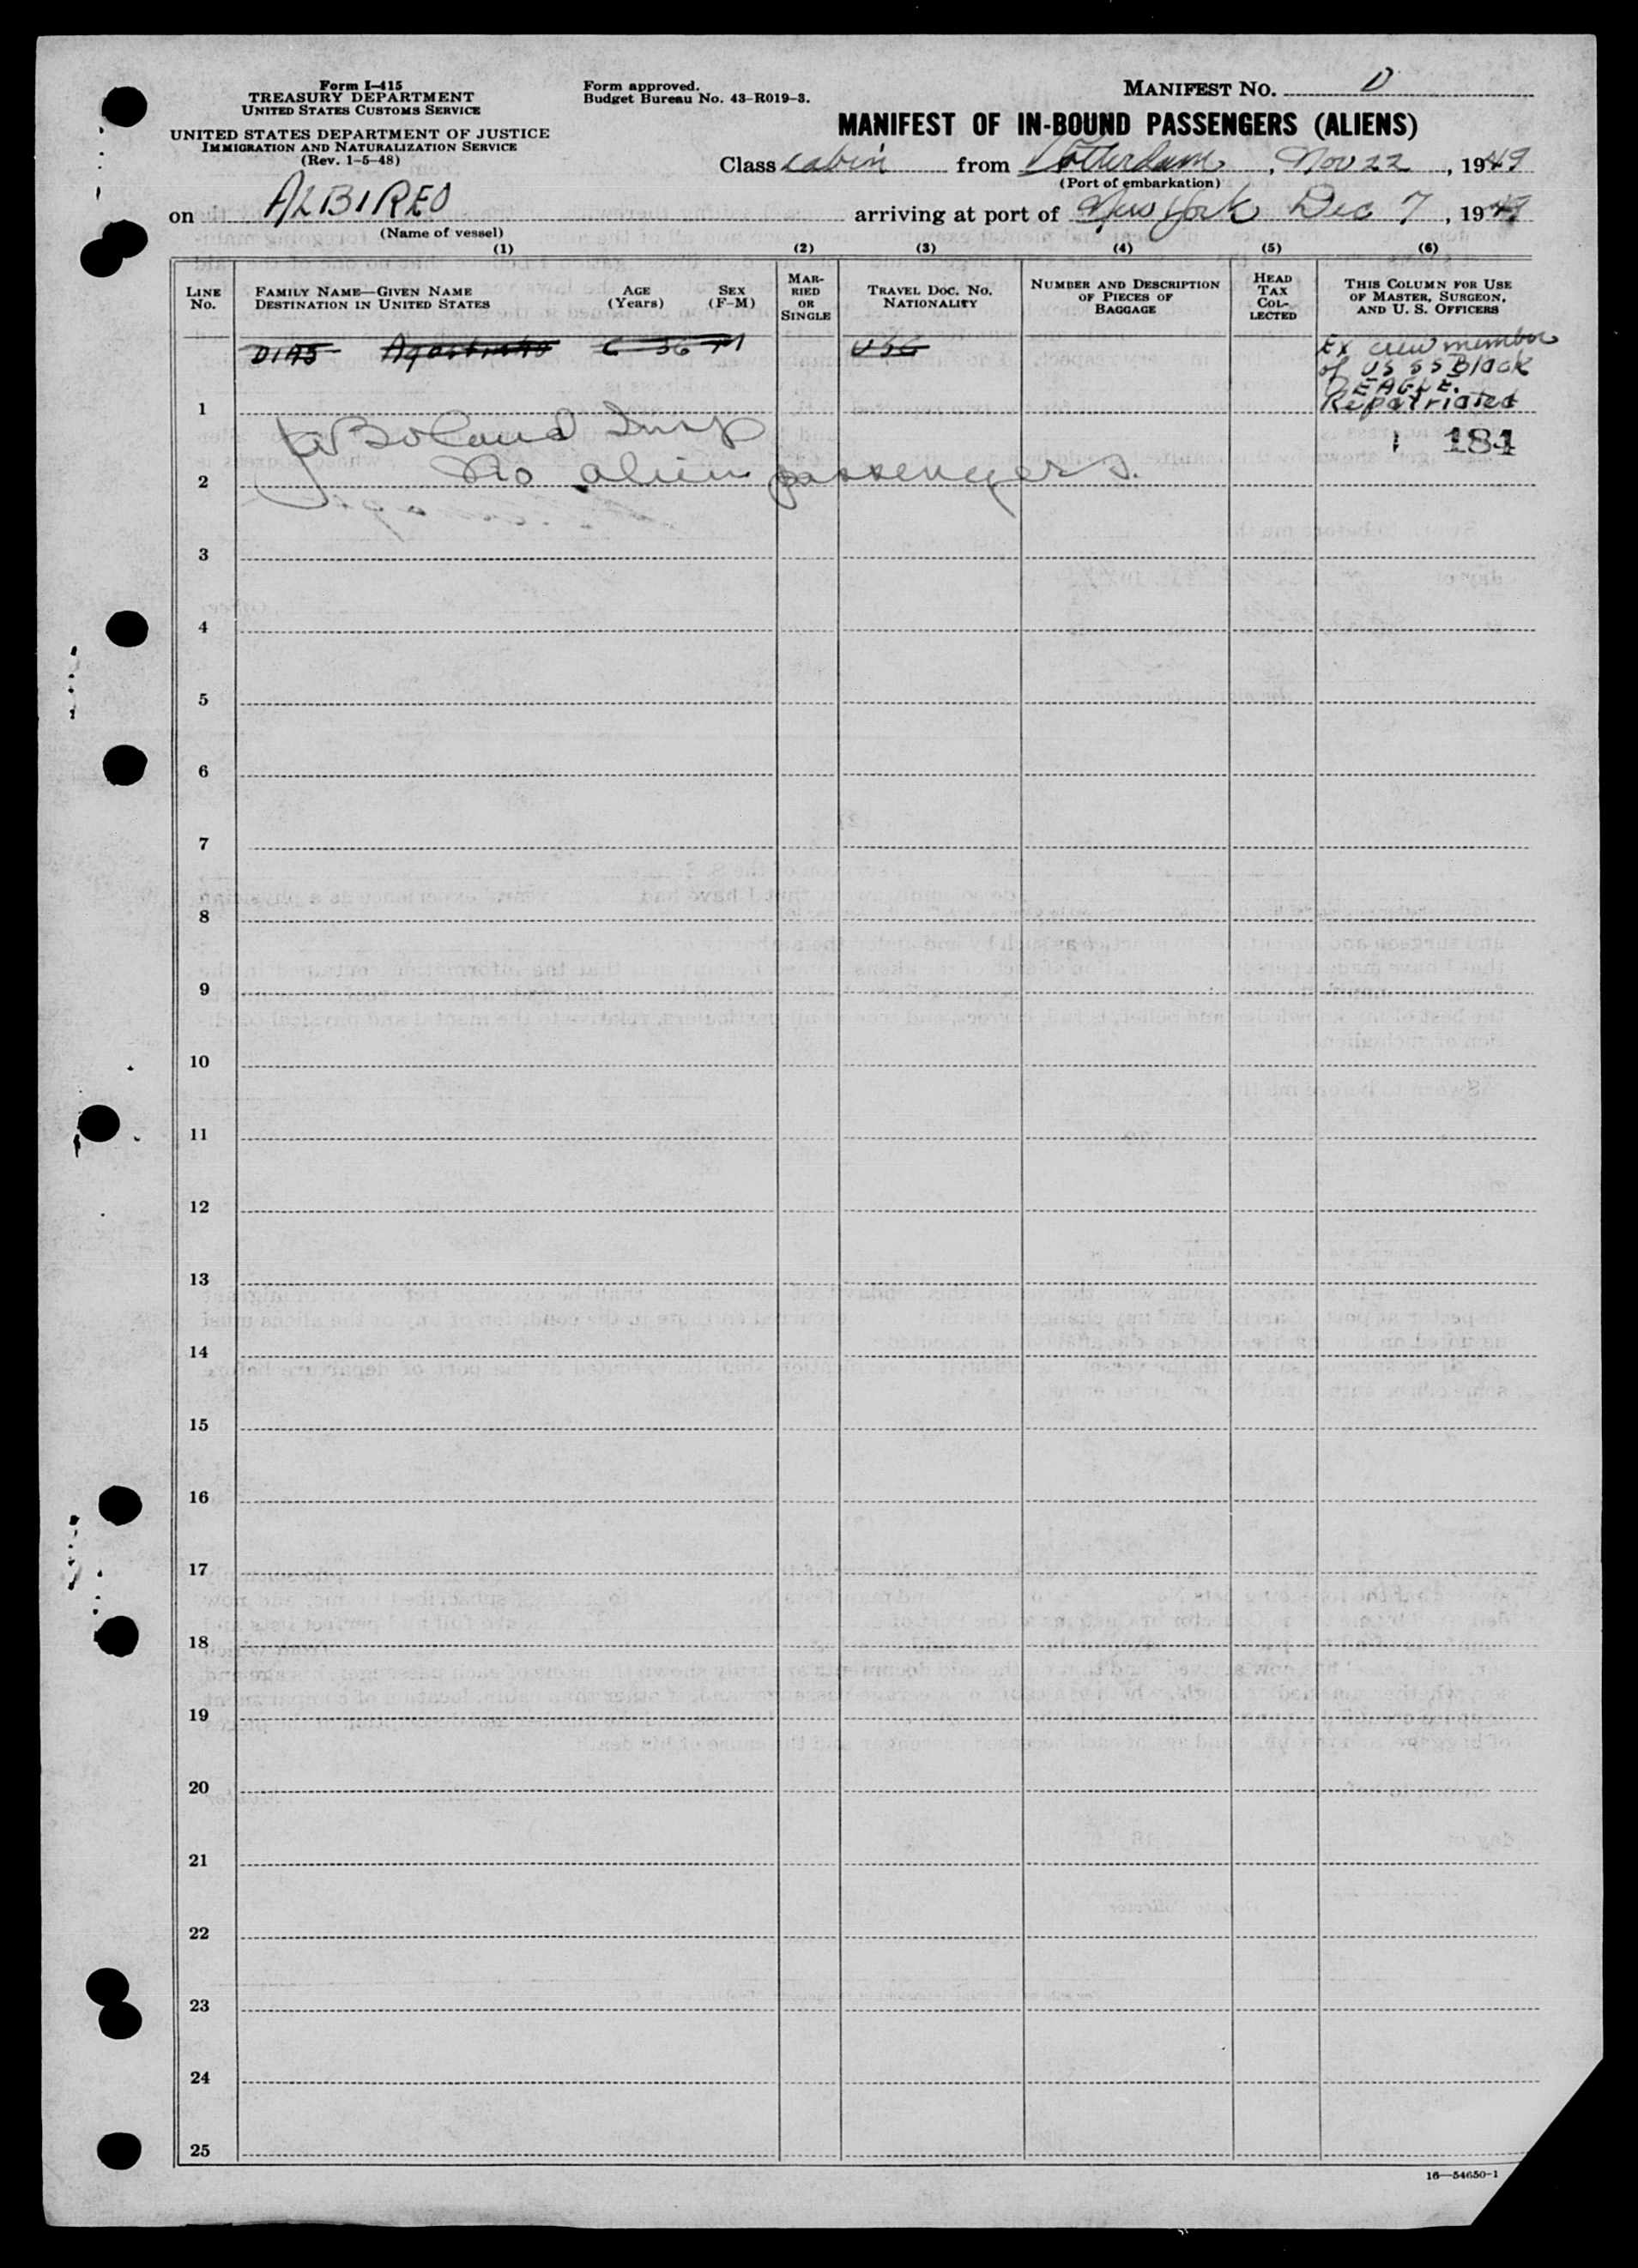 Form I-415
TREASURY DEPARTMENT
UNITED STATES CUSTOMS SERVICE
UNITED STATES DEPARTMENT OF JUSTICE
IMMIGRATION AND NATURALIZATION SERVICE
(Rev. 1-5-48)
Form approved.
Budget Bureau No. 43-R019-3.
MANIFEST No. D
MANIFEST OF IN-BOUND PASSENGERS (ALIENS)
Class cabin from Rotterdam, Nov 22, 1949
(Port of embarkation)
on ALBIREO arriving at port of New York Dec 7, 1949
(Name of vessel)
(1) (2) (3) (4) (5) (6)
LINE No.
FAMILY NAME—GIVEN NAME
DESTINATION IN UNITED STATES
AGE (Years)
SEX (F-M)
MARRIED OR SINGLE
TRAVEL DOC. NO.
NATIONALITY
NUMBER AND DESCRIPTION OF PIECES OF BAGGAGE
HEAD TAX COLLECTED
THIS COLUMN FOR USE OF MASTER, SURGEON, AND U. S. OFFICERS
DIAS Agostinho 56 M
Ex crew member
of US SS Black
EAGLE.
Repatriated
1
Boland Insp
184
No alien passengers.
2
3
4
5
6
7
8
9
10
11
12
13
14
15
16
17
18
19
20
21
22
23
24
25
16—54650-1